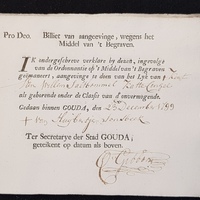 Pro Deo. Billiet van aangeevinge, wegens het
Middel van 't Begraven.
IK ondergeschreve verklare by dezen, ingevolge
van de Ordonnantie op 't Middel van 't Begraven
geëmaneert, aangevinge te doen van het Lyk van
van Willem
als gehorende onder de Classis van d'onvermogende.
Gedaan binnen GOUDA, den 23 December 1799
Ter Secretarye der Stad GOUDA,
geteikent op datum als boven.